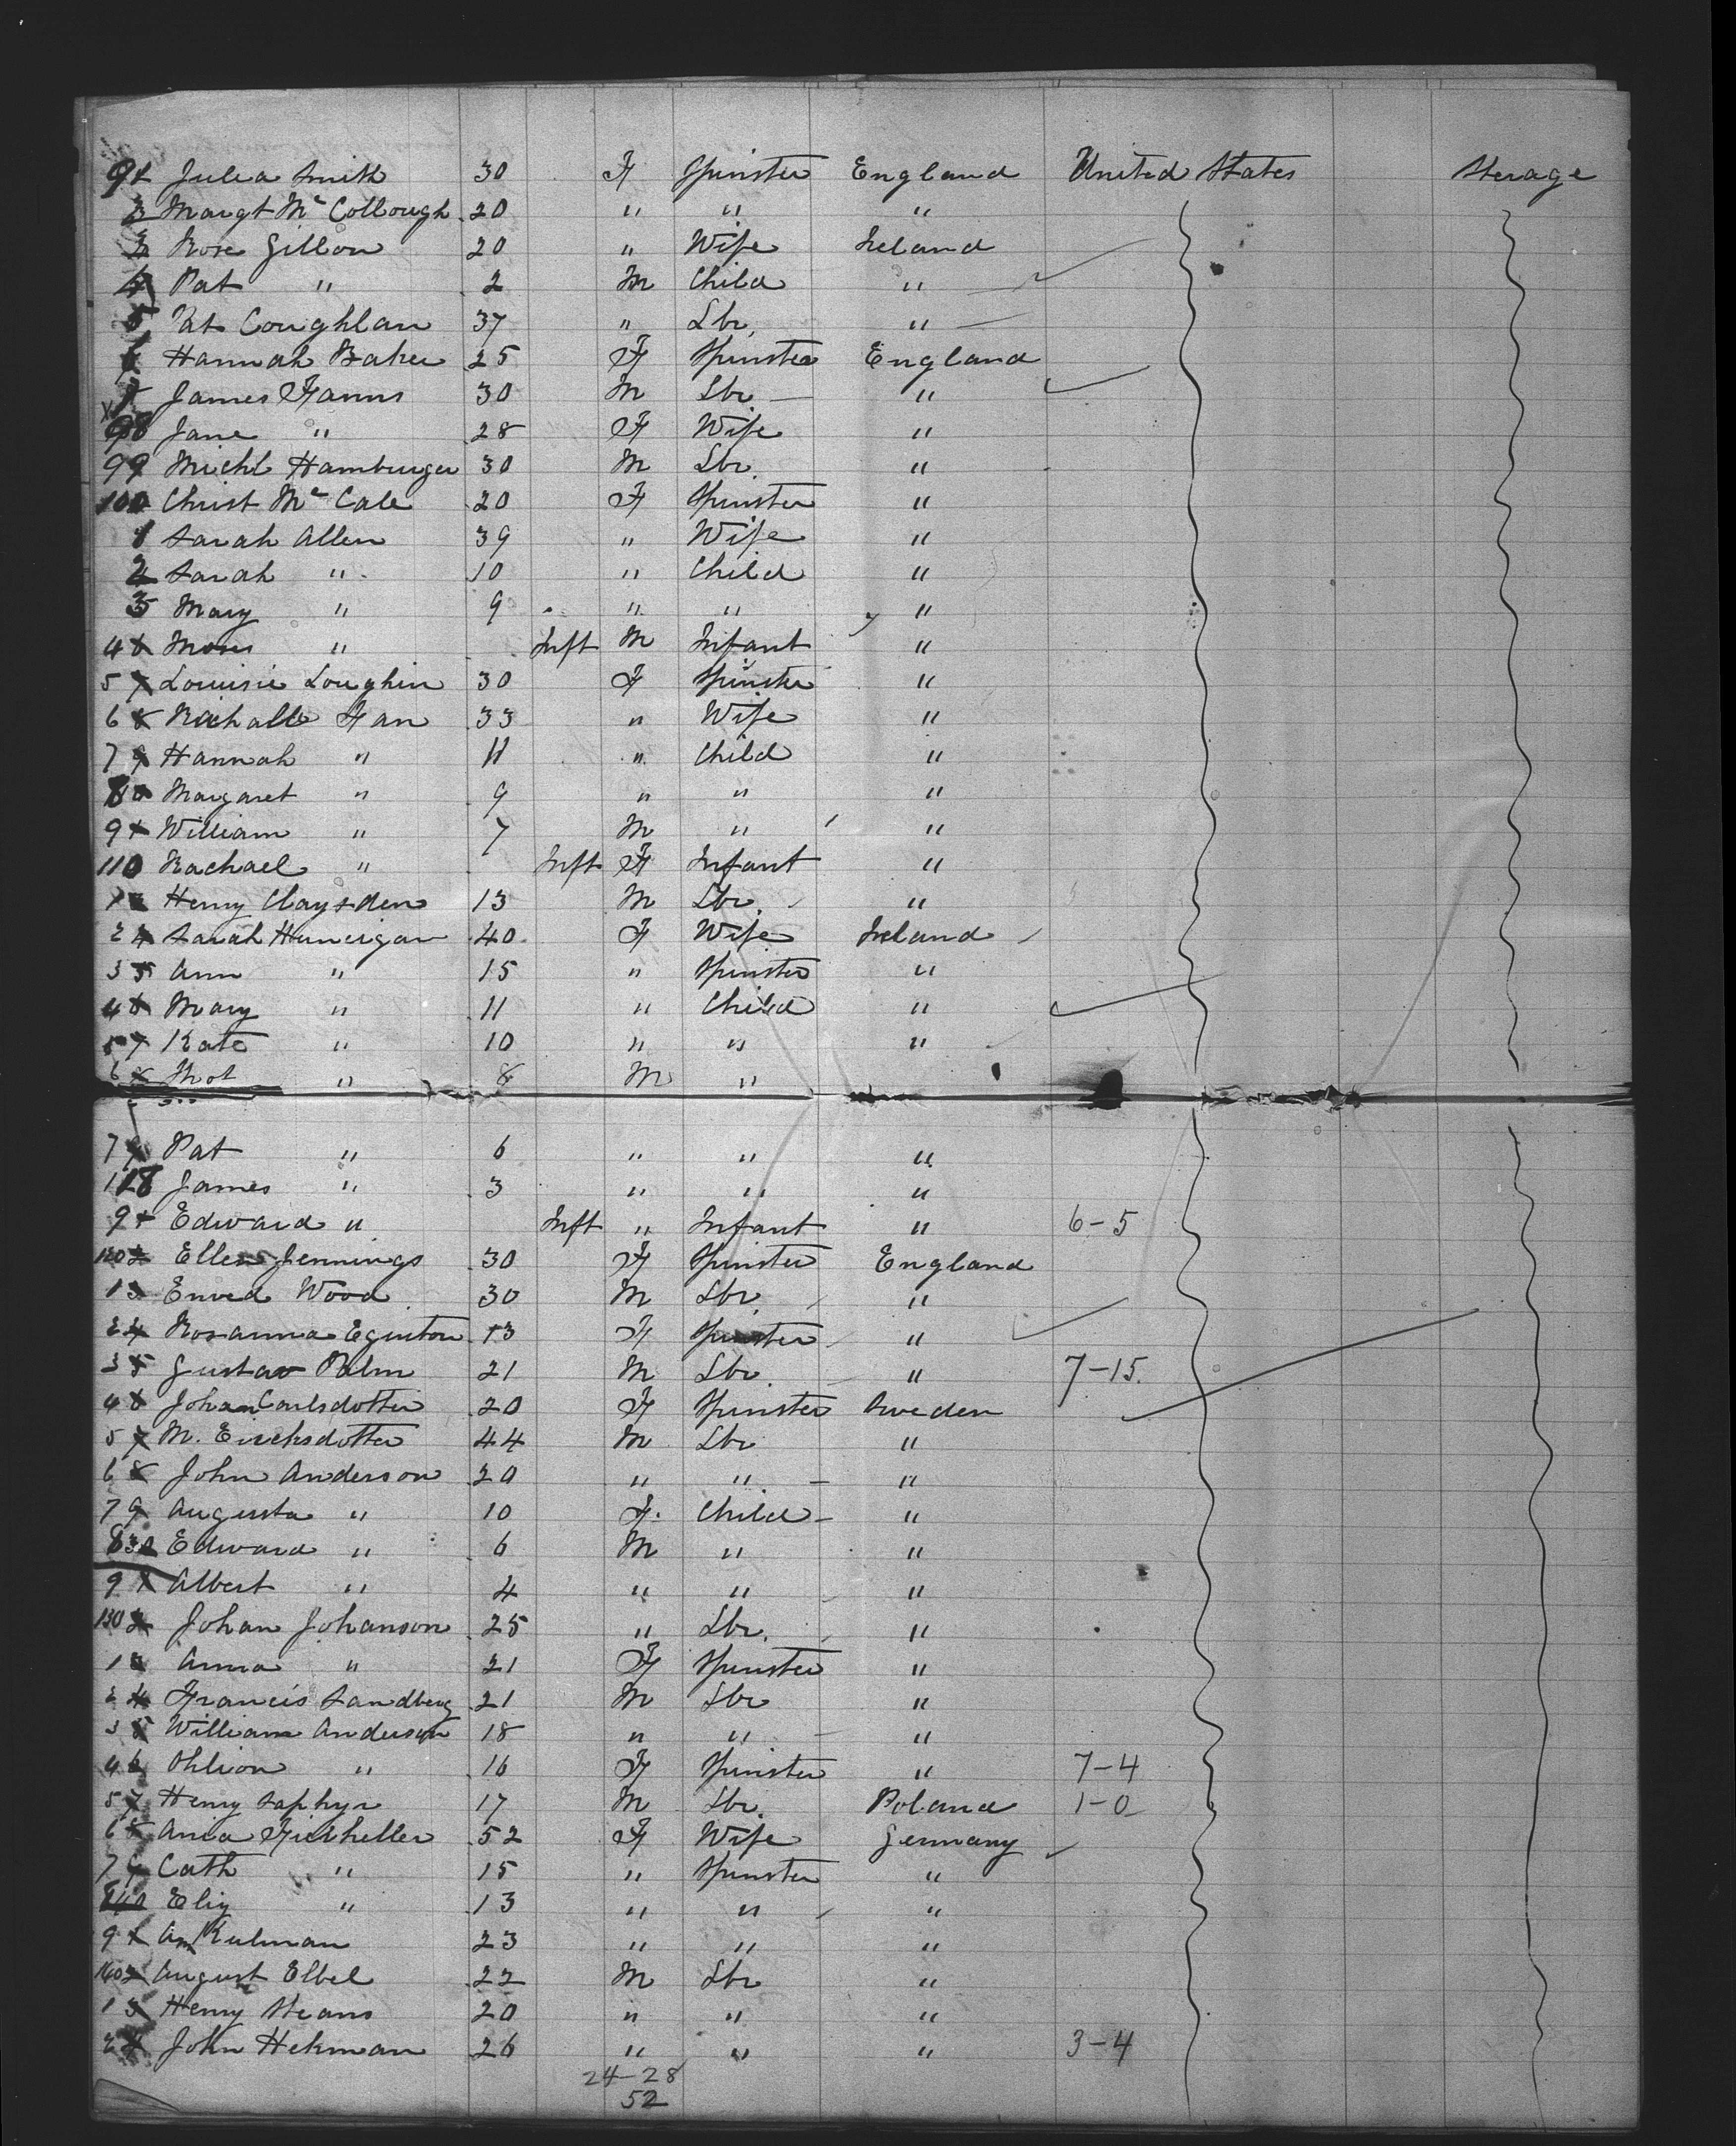 91 Julia Smith 30 F Spinster England United States Sterage
2 Margt Mc Collough 20 " " "
3 Rose Gillon 20 " Wife Ireland
4 Pat " 2 M Child "
5 Pat Coughlan 37 " Lbr. "
6 Hannah Baker 25 F Spinster England
7 James Fanns 30 M Lbr "
98 Jane " 28 F Wife "
99 Michl Hamburger 30 M Lbr. "
100 Christ Mc Cale 20 F Spinster "
1 Sarah Allen 39 " Wife "
2 Sarah " 10 " Child "
3 Mary " 9 " " "
4 Moses " Inft M Infant "
5 Louisie Loughin 30 F Spinster "
6 Richall Fan 33 " Wife "
7 Hannah " 11 " Child "
8 Margaret " 9 " " "
9 William " 7 M " "
110 Rachael " Inft F Infant "
1 Henry Claysden 13 M Lbr. "
2 Sarah Hunigan 40 F Wife Ireland
3 Ann " 15 " Spinster "
4 Mary " 11 " Child "
5 Kate " 10 " " "
6 Thos " 8 M "
7 Pat " 6 " " "
118 James " 3 " " "
9 Edward " Inft " Infant " 6-5
120 Ellen Jennings 30 F Spinster England
1 Enved Wood 30 M Lbr. "
2 Rosanna Eginton 13 F Spinster "
3 Gustav Palm 21 M Lbr. " 7-15
4 Johan Carlsdotter 20 F Spinster Sweden
5 M. Eircksdotter 44 M Lbr "
6 John Anderson 20 " " "
7 Augusta " 10 F. Child "
8 Edward " 6 M " "
9 Albert " 4 " " "
130 Johan Johanson 25 " Lbr. "
1 Anna " 21 F Spinster "
2 Francis Sandberg 21 M Lbr "
3 William Anderson 18 " " "
4 Ohlion " 16 F Spinster " 7-4
5 Henry Saphyr 17 M Lbr. Poland 1-0
6 Anna 52 F Wife Germany
7 Cath " 15 " Spinster "
Eliz " 13 " " "
9 Am Kulman 23 " " "
140 August Elbel 22 M Lbr "
1 Henry Steans 20 " " "
2 John Hekman 26 " " " 3-4
24-28
52